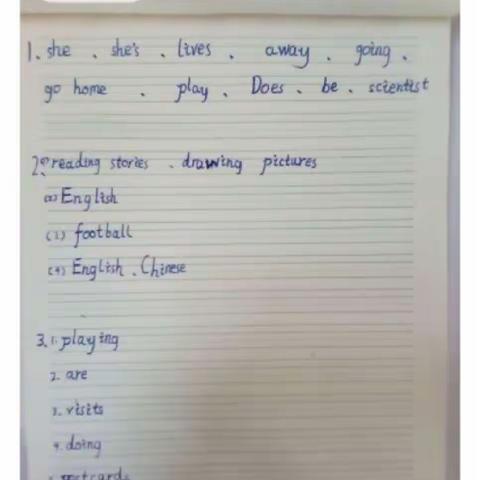 1. she 、 she's 、 lives 、 away 、 going 、
go home 、 play 、 Does 、 be 、 scientist
2. (1) reading stories 、 drawing pictures
(2) English
(3) football
(4) English 、 Chinese
3. 1. playing
2. are
3. visits
4. doing
5. postcards